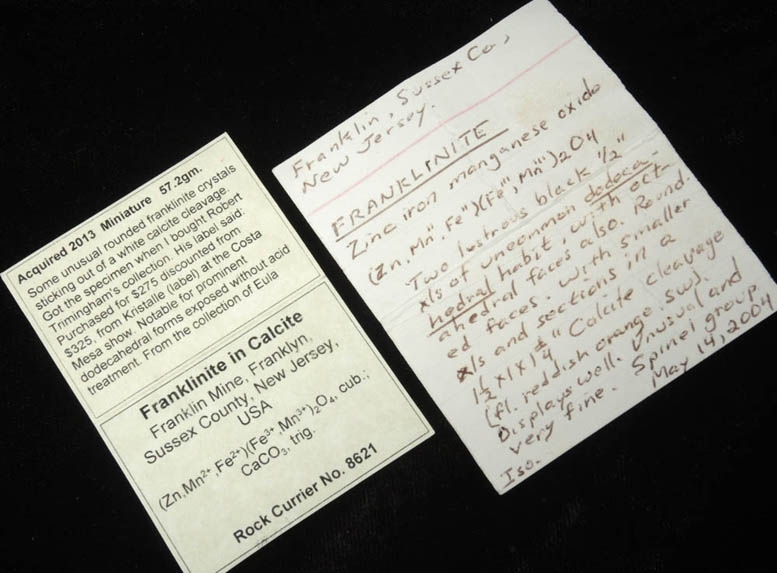 Acquired 2013 Miniature 57.2gm.
Some unusual rounded franklinite crystals
sticking out of a white calcite cleavage.
Got the specimen when I bought Robert
Trimingham's collection. His label said:
Purchased for $275 discounted from
$325, from Kristalle (label) at the Costa
Mesa show. Notable for prominent
dodecahedral forms exposed without acid
treatment. From the collection of Eula
Franklinite in Calcite
Franklin Mine, Franklyn,
Sussex County, New Jersey,
USA
(Zn,Mn²⁺,Fe²⁺)(Fe³⁺,Mn³⁺)₂O₄, cub.;
CaCO₃, trig.
Rock Currier No. 8621
Franklin, Sussex Co.,
New Jersey.
FRANKLINITE
Zinc iron manganese oxide
(Zn, Mn", Fe")(Fe''', Mn''')2O4
Two lustrous black 1/2"
xls of uncommon dodeca-
hedral habit, with oct-
ahedral faces also. Round-
ed faces. With smaller
xls and sections in a
1½x1x1¼" Calcite cleavage
(fl. reddish orange. sw).
Displays well. Unusual and
very fine. Spinel group
Iso. May 14, 2004